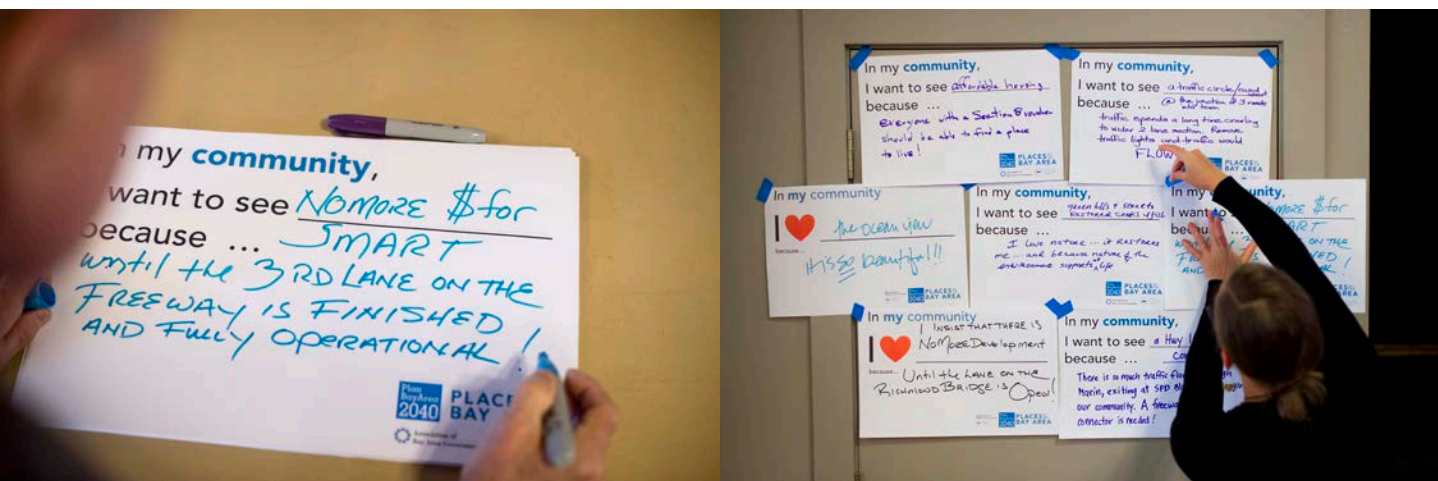 my community,
want to see NO MORE $ for
because ... SMART
until the 3RD LANE ON THE
FREEWAY IS FINISHED
AND FULLY OPERATIONAL !
Plan
BayArea
2040
PLACE
BAY
Association of
Bay Area Governments
In my community,
I want to see affordable housing
because ...
Everyone with a Section 8 voucher
should be able to find a place
to live!
PLACES
BAY AREA
2040
In my community,
I want to see a traffic circle/
because ... @ the junction of 3 roads
traffic spends a long time crawling
to wider 2 lane median. Remove
traffic lights and traffic would
FLOW
PLACES
BAY AREA
In my community
I ❤ the ocean view
because...
it is so beautiful!!
2040
PLACES
BAY AREA
In my community,
I want to see green hills + streets
because ...
I love nature ... it RESTORES
me ... and because nature of the
environment supports life
2040
PLACES
BAY AREA
In my community,
I want to MORE $ for
ART
ON THE
FINISHED
AND
!
In my community
I ❤ I INSIST THAT THERE IS
No More Development
because... Until the LANE ON THE
RICHMOND BRIDGE IS Open!
2040
PLACES
BAY AREA
In my community,
I want to see a Hwy
because ...
There is so much traffic
Marin, exiting at SFD
our community. A
connector is needed!